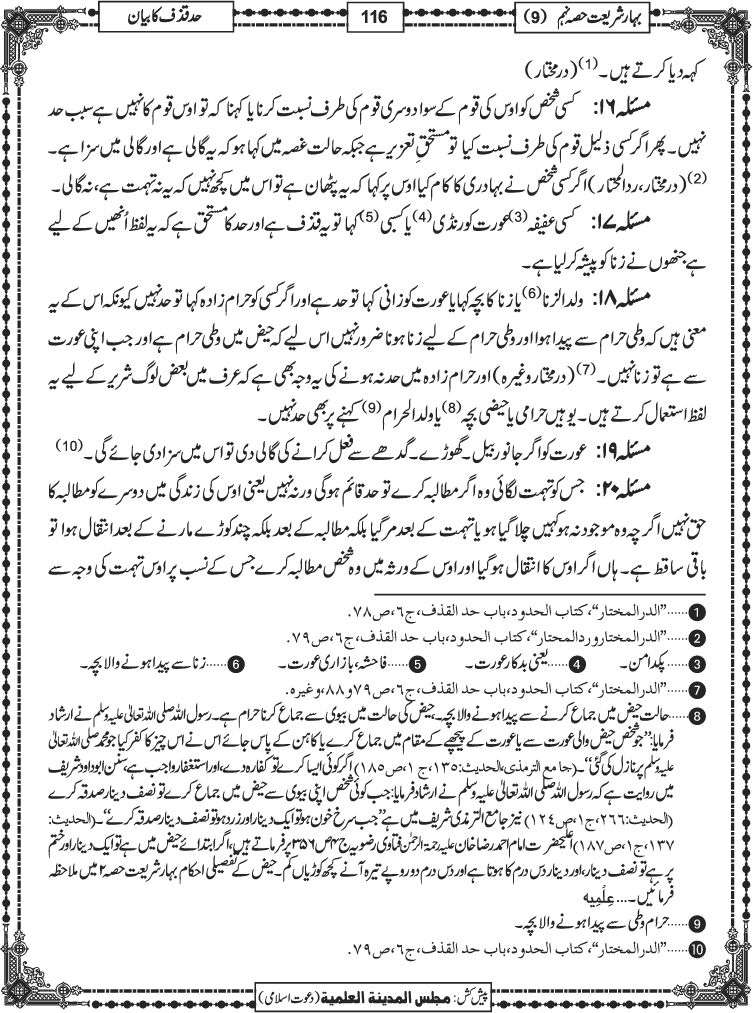 بہار شریعت حصہ نہم (9)
116
حد قذف کا بیان
کہہ دیا کرتے ہیں۔(1) (درمختار)
مسئلہ ۱۶: کسی شخص کو اوس کی قوم کے سوا دوسری قوم کی طرف نسبت کرنا یا کہنا کہ تو اوس قوم کا نہیں ہے سبب حد
نہیں۔ پھر اگر کسی ذلیل قوم کی طرف نسبت کیا تو مستحقِ تعزیر ہے جبکہ حالت غصہ میں کہا ہو کہ یہ گالی ہے اور گالی میں سزا ہے۔
(2) (درمختار، ردالمحتار) اگر کسی شخص نے بہادری کا کام کیا اوس پر کہا کہ یہ پٹھان ہے تو اس میں کچھ نہیں کہ یہ نہ تہمت ہے، نہ گالی۔
مسئلہ ۱۷: کسی عفیفہ(3) عورت کو رنڈی(4) یا کسبی(5) کہا تو یہ قذف ہے اور حد کا مستحق ہے کہ یہ لفظ اُنھیں کے لیے
ہے جنھوں نے زنا کو پیشہ کر لیا ہے۔
مسئلہ ۱۸: ولد الزنا(6) یا زنا کا بچہ کہا یا عورت کو زانی کہا تو حد ہے اور اگر کسی کو حرام زادہ کہا تو حد نہیں کیونکہ اس کے یہ
معنی ہیں کہ وطی حرام سے پیدا ہوا اور وطی حرام کے لیے زنا ہونا ضرور نہیں اس لیے کہ حیض میں وطی حرام ہے اور جب اپنی عورت
سے ہے تو زنا نہیں۔(7) (درمختار وغیرہ) اور حرام زادہ میں حد نہ ہونے کی یہ وجہ بھی ہے کہ عرف میں بعض لوگ شریر کے لیے یہ
لفظ استعمال کرتے ہیں۔ یوہیں حرامی یا حیضی بچہ(8) یا ولد الحرام(9) کہنے پر بھی حد نہیں۔
مسئلہ ۱۹: عورت کو اگر جانور بیل۔ گھوڑے۔ گدھے سے فعل کرانے کی گالی دی تو اس میں سزا دی جائے گی۔(10)
مسئلہ ۲۰: جس کو تہمت لگائی وہ اگر مطالبہ کرے تو حد قائم ہوگی ورنہ نہیں یعنی اوس کی زندگی میں دوسرے کو مطالبہ کا
حق نہیں اگرچہ وہ موجود نہ ہو کہیں چلا گیا ہو یا تہمت کے بعد مر گیا بلکہ مطالبہ کے بعد بلکہ چند کوڑے مارنے کے بعد انتقال ہوا تو
باقی ساقط ہے۔ ہاں اگر اوس کا انتقال ہوگیا اور اوس کے ورثہ میں وہ شخص مطالبہ کرے جس کے نسب پر اوس تہمت کی وجہ سے
1 ......”الدرالمختار“، کتاب الحدود، باب حد القذف، ج٦، ص٧٨.
2 ......”الدرالمختار وردالمحتار“، کتاب الحدود، باب حد القذف، ج٦، ص٧٩.
3 ......پاکدامن۔ 4 ......یعنی بدکار عورت۔ 5 ......فاحشہ، بازاری عورت۔ 6 ......زنا سے پیدا ہونے والا بچہ۔
7 ......”الدرالمختار“، کتاب الحدود، باب حد القذف، ج٦، ص٧٩ و ٨٨، وغیرہ.
8 ......حالت حیض میں جماع کرنے سے پیدا ہونے والا بچہ۔ حیض کی حالت میں بیوی سے جماع کرنا حرام ہے۔ رسول اللہ صلی اللہ تعالیٰ علیہ وسلم نے ارشاد
فرمایا: ”جو شخص حیض والی عورت سے یا عورت کے پیچھے کے مقام میں جماع کرے یا کاہن کے پاس جائے اس نے اس چیز کا کفر کیا جو محمد صلی اللہ تعالیٰ
علیہ وسلم پر نازل کی گئی“۔ (جامع الترمذی، الحدیث: ١٣٥، ج١، ص١٨٥) اگر کوئی ایسا کرے تو کفارہ دے، اور استغفار واجب ہے، سنن ابوداود شریف
میں روایت ہے کہ رسول اللہ صلی اللہ تعالیٰ علیہ وسلم نے ارشاد فرمایا: جب کوئی شخص اپنی بیوی سے حیض میں جماع کرے تو نصف دینار صدقہ کرے
(الحدیث: ٢٦٦، ج١، ص١٢٤) نیز جامع الترمذی شریف میں ہے ”جب سرخ خون ہو تو ایک دینار اور زرد ہو تو نصف دینار صدقہ کرے“۔ (الحدیث:
١٣٧، ج١، ص١٨٧) اعلیٰحضرت امام احمد رضا خان علیہ رحمۃ الرحمٰن فتاوی رضویہ ج۴ ص۳۵۶ پر فرماتے ہیں، اگر ابتدائے حیض میں ہے تو ایک دینار اور ختم
پر ہے تو نصف دینار، اور دینار دس درم کا ہوتا ہے اور دس درم دو روپے تیرہ آنے کچھ کوڑیاں کم۔ حیض کے تفصیلی احکام بہار شریعت حصہ ۲ میں ملاحظہ
فرمائیں۔... عِلْمِیہ
9 ......حرام وطی سے پیدا ہونے والا بچہ۔
10 ......”الدرالمختار“، کتاب الحدود، باب حد القذف، ج٦، ص٧٩.
پیش کش: مجلس المدینة العلمیة (دعوت اسلامی)